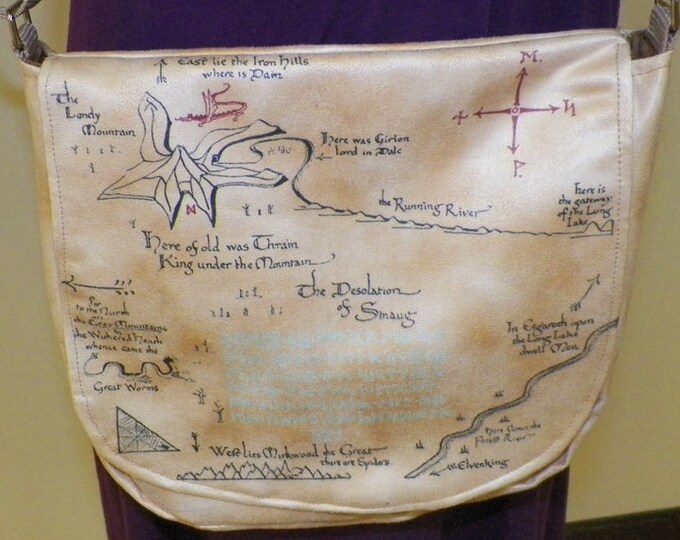 East lie the Iron Hills
where is Dain
The
Londy
Mountain
Here was Girion
lord in Dale
the Running River
here is
the gateway
of the Long
Lake
Here of old was Thrain
King under the Mountain
The Desolation
of Smaug
Far
to the North
are
the Grey Mountains
the Withered Heath
whence came the
Great Worms.
In Esgaroth upon
the Long Lake
dwell Men
Here flows the
Forest River
to Elvenking
West lies Mirkwood the Great
there are Spiders.